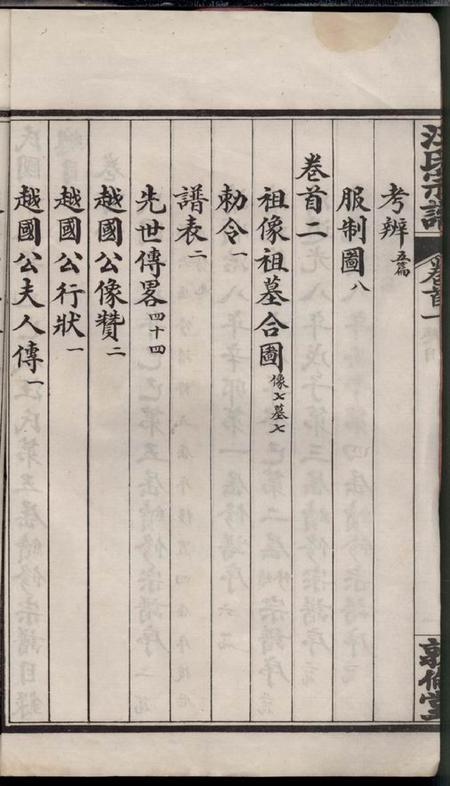 汪氏宗譜
卷首一
敦倫堂
考辨 五篇
服制圖 八
卷首二
祖像祖墓合圖 像七墓七
勅令 一
譜表 二
先世傳畧 四十四
越國公像贊 二
越國公行狀 一
越國公夫人傳 一